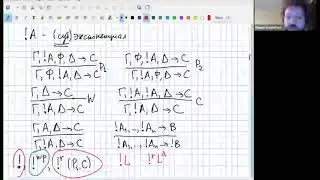 !A - (суб)экспоненциал
Γ, !A, Φ, Δ → C
Γ, Φ, !A, Δ → C P₁
Γ, Φ, !A, Δ → C
Γ, !A, Φ, Δ → C P₂
Γ, Δ → C
Γ, !A, Δ → C W
Γ, !A, !A, Δ → C
Γ, !A, Δ → C C
Γ, A, Δ → C
Γ, !A, Δ → C
!A₁, .., !Aₙ → B
!A₁, .., !Aₙ → !B
!, (P, C)